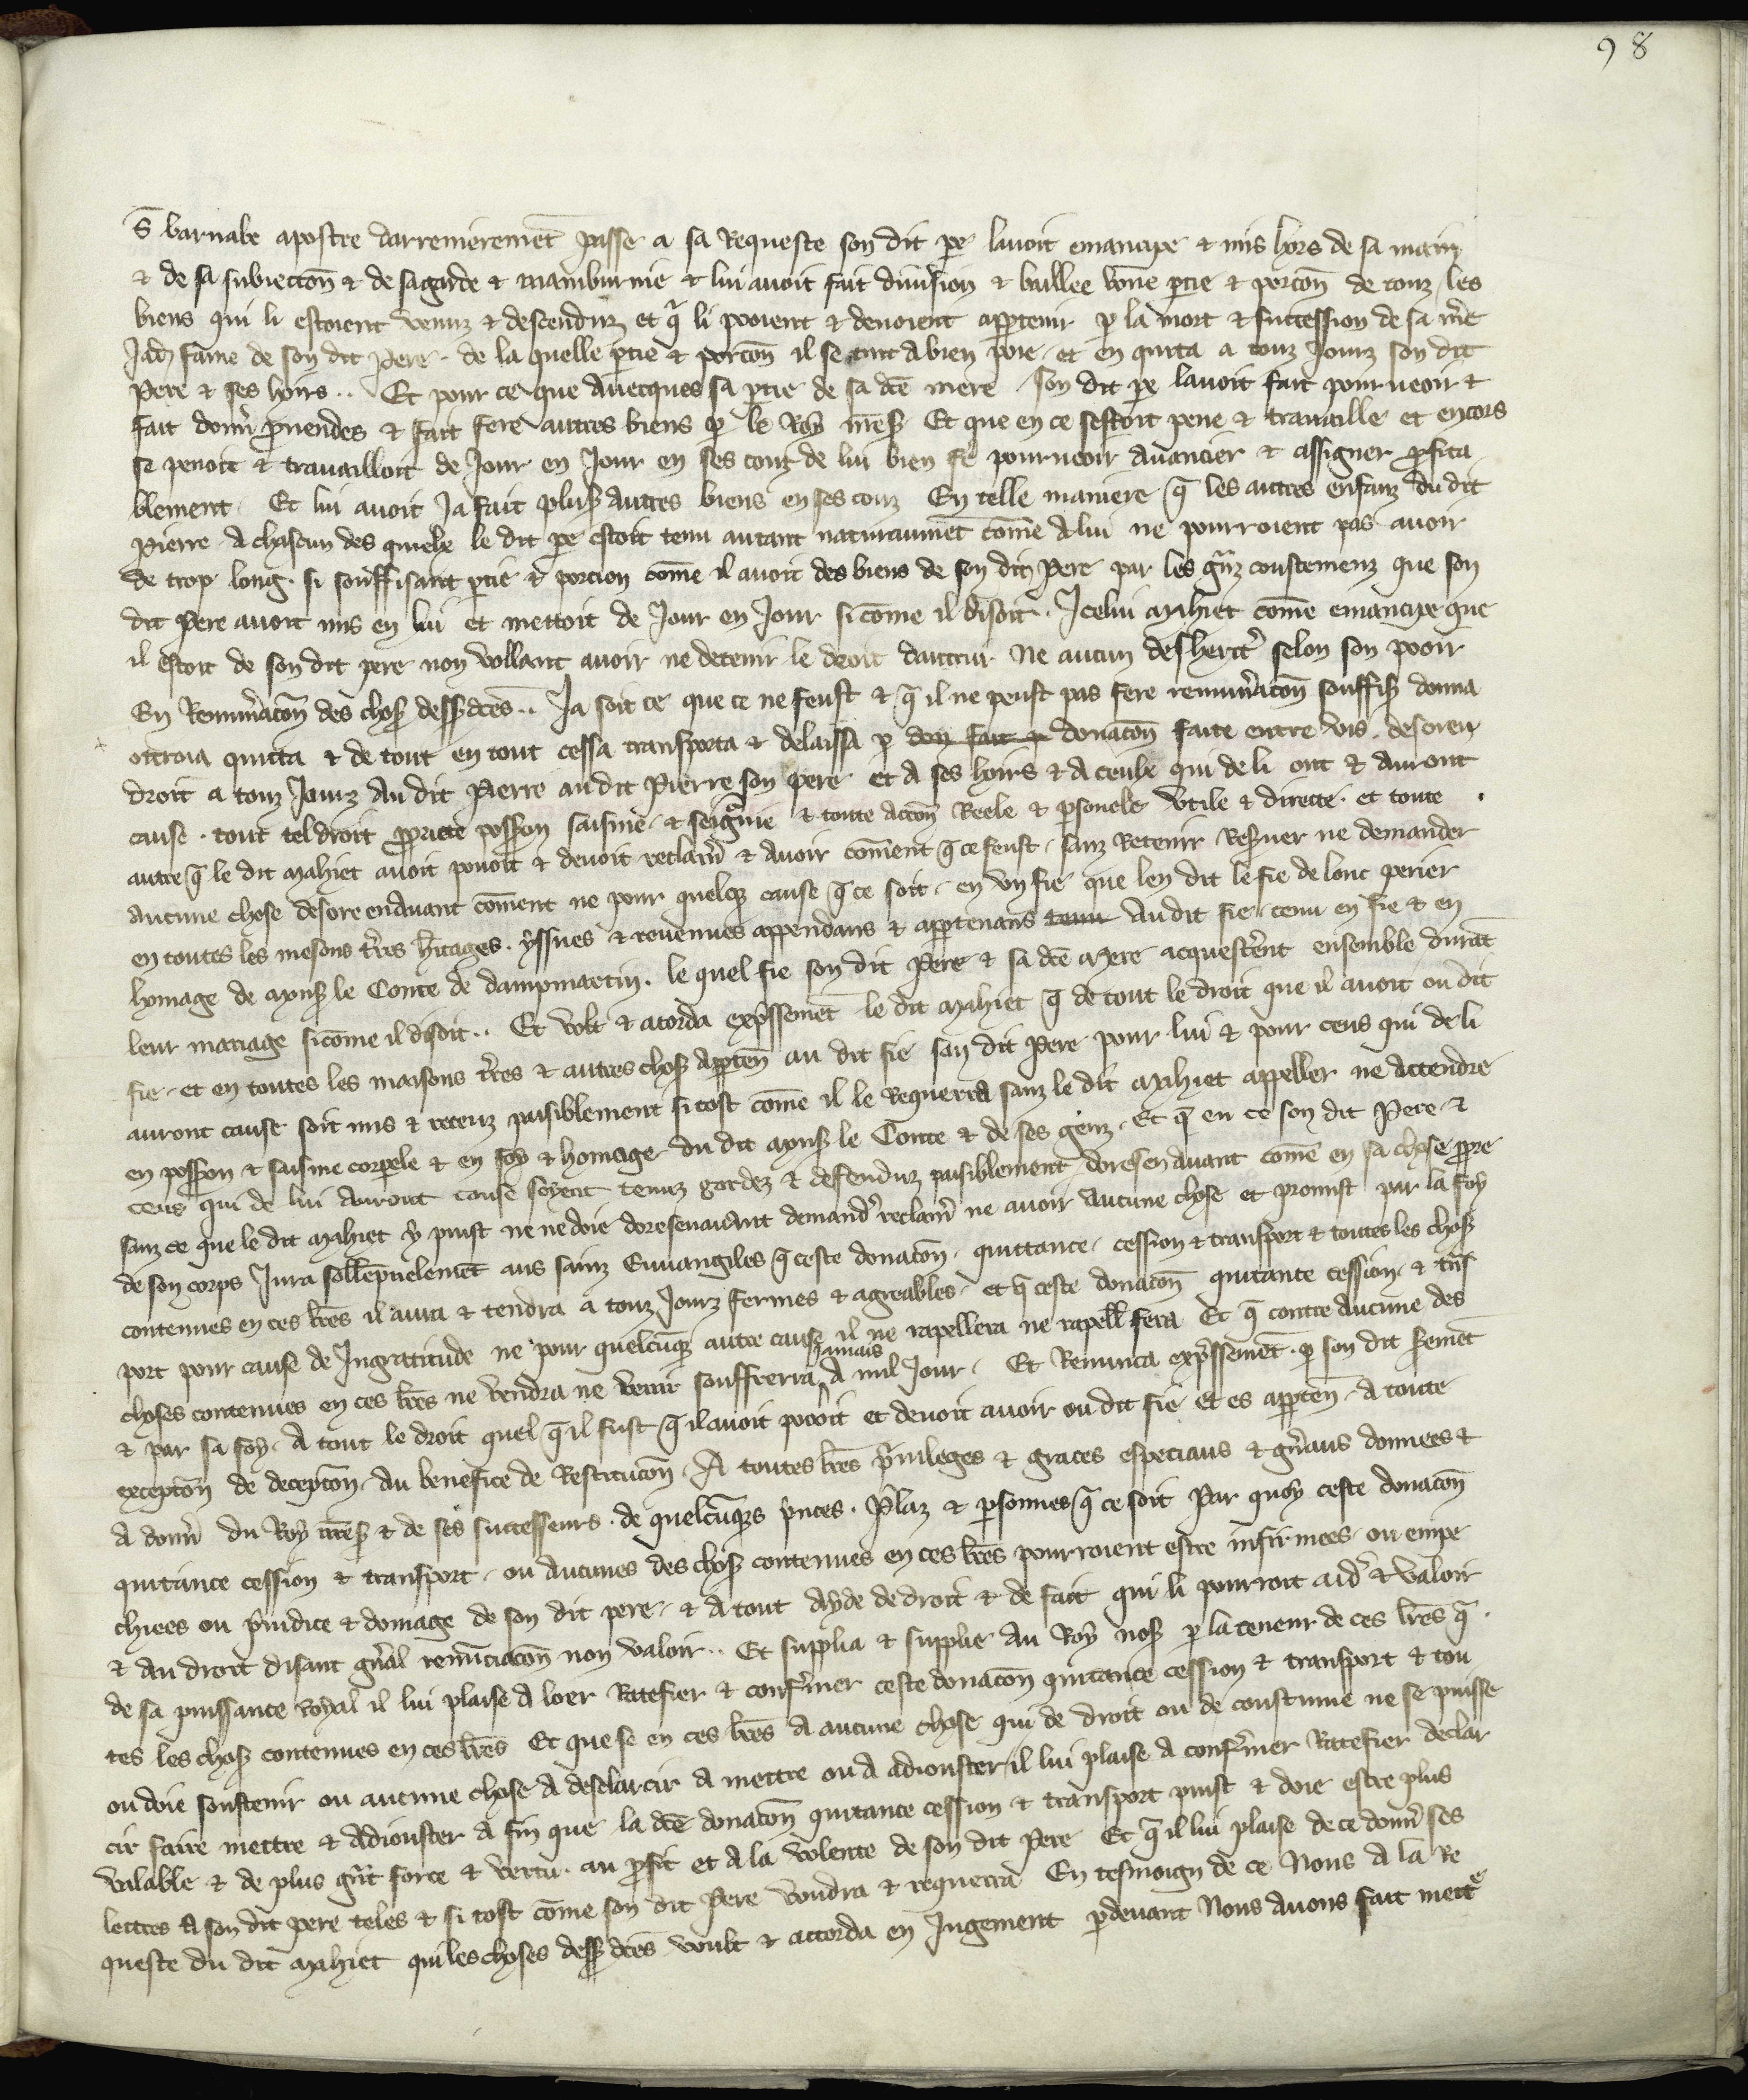 98
S̄ barnabe apostre darrenieremēt passe a sa Requeste son dit pe lavoit emancipe & mis hors de sa main
& de sa subiectiōn & de sa garde & mamburnie & lui avoit fait division & baillee bōne ptie & porcōn de touz les
biens qui li estoient venuz & descenduz et q̄ li pooient & devoient apptenir p la mort & succession de sa m̄e
Jadis fame de son dit Pere. de la quelle ptie & porcōn il se tint a bien poie. et en quita a touz Jourz son dit
Pere & ses hoirs.. Et pour ce que avecques sa ptie de sa dc̄e mere son dit pe lavoit fait pourveoir &
fait donn̄ pvendes & fait fere autres biens p le Roy nr̄es Et que en ce sestoit pene & travaille et encors
se penoit & travailloit de Jour en Jour en ses couz de lui bien fe pourveoir avancier & assigner pfita
blement. Et lui avoit Ja fait plus autres biens en ses couz En telle maniere q̄ les autres enfanz du dit
Pierre a chascun des quielx le dit pe estoit tenu autant naturaumēt cōme a lui ne pourroient pas avoir
de trop long. si souffisant ptie & porcion cōme il avoit des biens de son dit Pere par les gn̄z coustemenz que son
dit Pere avoit mis en lui et mettoit de Jour en Jour si cōme il disoit.. Icelui Mahiet cōme emancipe que
il estoit de son dit pere non vollant avoir ne detenir le droit dautrui Ne aucun desherit̄ selon son pooir
En Remun̄acōn des choses dessusdc̄es.. Ja soit ce que ce ne feust & q̄ il ne peust pas fere remun̄acōn souffis donna
ottroia quitta & de tout en tout cessa transporta & delaissa p don fait p donacōn faite entre vis. desoren
droit a touz Jourz au dit Pierre au dit Pierre son pere et a ses hoirs & a ceulx qui de li ont & auront
cause. tout tel droit ppriete possion saisine. & seignīe & toute accōn Reele & psonele vtile & directe. et toute
autre q̄ le dit Mahiet avoit povoit & devoit reclam̄ & avoir cōment q̄ ce feust. sanz Retenir Resver ne demander
aucune chose desore en avant cōment ne pour quelq cause q̄ ce soit. en vn fie que len dit le fie de lonc perier
en toutes les mesons tr̄res hītages. yssues & revenues appendans & apptenans tenu au dit fie. tenu en fie & en
homage de mons le Conte de dampmartin. le quel fie son dit Pere & sa dc̄e Mere acquestr̄ent ensemble durāt
leur mariage si cōme il disoit.. Et volt & acorda expssemēt le dit Mahiet q̄ de tout le droit que il avoit ou dit
fie. et en toutes les maisons tr̄res & autres choses apptēn au dit fie son dit Pere pour lui & pour ceus qui de li
auront cause soit mis & receuz paisiblement si tost cōme il le Requerra sanz le dit Mahiet appeller ne attendre
en possion & saisine corpele & en foy & homage du dit mons le Conte & de ses genz. Et q̄ en ce son dit Pere &
ceus qui de lui auront cause soyent tenuz gardez & defenduz paisiblement doresenavant cōme en sa chose ppre
sanz ce que le dit Mahiet y puist ne ne doie doresenavant demand̄ reclam̄ ne avoir aucune chose et promist par la foy
de son corps Jura sollēpnelemēt aus sainz Euvangiles q̄ ceste donacōn. quittance. cession & transport & toutes les choses
contenues en ces lr̄es il aura & tendra a touz Jourz fermes & agreables. et q̄ ceste donacōn quitance cession & tn̄s
port pour cause de Ingratitude ne pour quelcūq autre cause il ne rapellera ne rapell fera Et q̄ contre aucune des
choses contenues en ces lr̄es ne vendra ne venir souffrera Jamais a nul Jour. Et Renunca expssemēt. p son dit semēt
& par sa foy. A tout le droit quel q̄ il fust q̄ il avoit povoit et devoit avoir ou dit fie et es apptēn. A toute
exceptōn de deceptōn. Au benefice de Restitucōn. A toutes lr̄es pvileges & graces especiaus & gn̄aus donnees &
a donn̄ du Roy nr̄es & de ses successeurs. de quelcūqs pnces. Plaz & psonnes q̄ ce soit Par quoy ceste donacōn
quitance cession & transport. ou aucunes des choses contenues en ces lr̄es pourroient estre infirmees. ou empe
chiees ou preiudice & domage de son dit pere. & a tout ayde de droit & de fait qui li pourroit aid̄ & valoir
& au droit disant gn̄al renunciacōn non valoir.. Et supplia & supplie au Roy nos p la teneur de ces lr̄es q̄.
de sa puissance royal il lui plaise a loer Ratefier & conf̄mer ceste donacōn quitance cession & transport & tou
tes les choses contenues en ces lr̄es Et que se en ces lr̄es a aucune chose qui de droit ou de coustume ne se puisse
ou doie soustenir ou aucune chose a desclarcir a mettre ou a adiouster il lui plaise a conf̄mer Ratefier declar
cir faire mettre & adiouster a fin que la dc̄e donacōn quitance cession & transport puist & doie estre plus
valable & de plus gn̄t force & vertu. au pfit et a la volente de son dit Pere Et q̄ il lui plaise de ce donn̄ ses
lettres a son dit pere teles & si tost cōme son dit Pere voudra & requerra En tesmoign de ce Nous a la Re
queste du dit Mahiet qui les choses dessus dc̄es voult & accorda en Jugement pdevant Nous avons fait mettᵉ